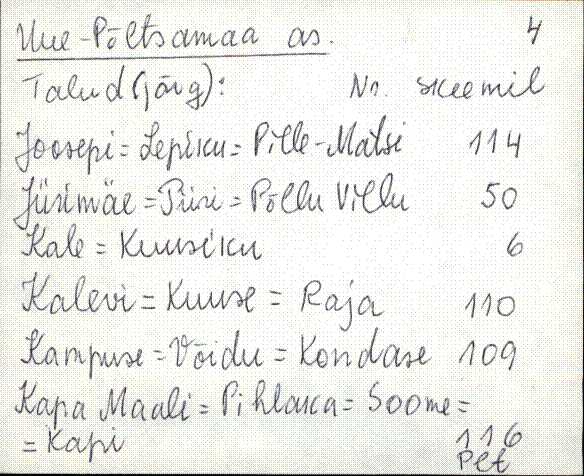 Uue-Põltsamaa as. 4
Talud (järg): Nr. skeemil
Joosepi = Lepiku = Pille-Matsi 114
Jürimäe = Piiri = Põllu Villu 50
Kale = Kuusiku 6
Kalevi = Kuuse = Raja 110
Kampuse = Võidu = Kondase 109
Kapa Maali = Pihlaka = Soome =
= Kapi 116
Plt